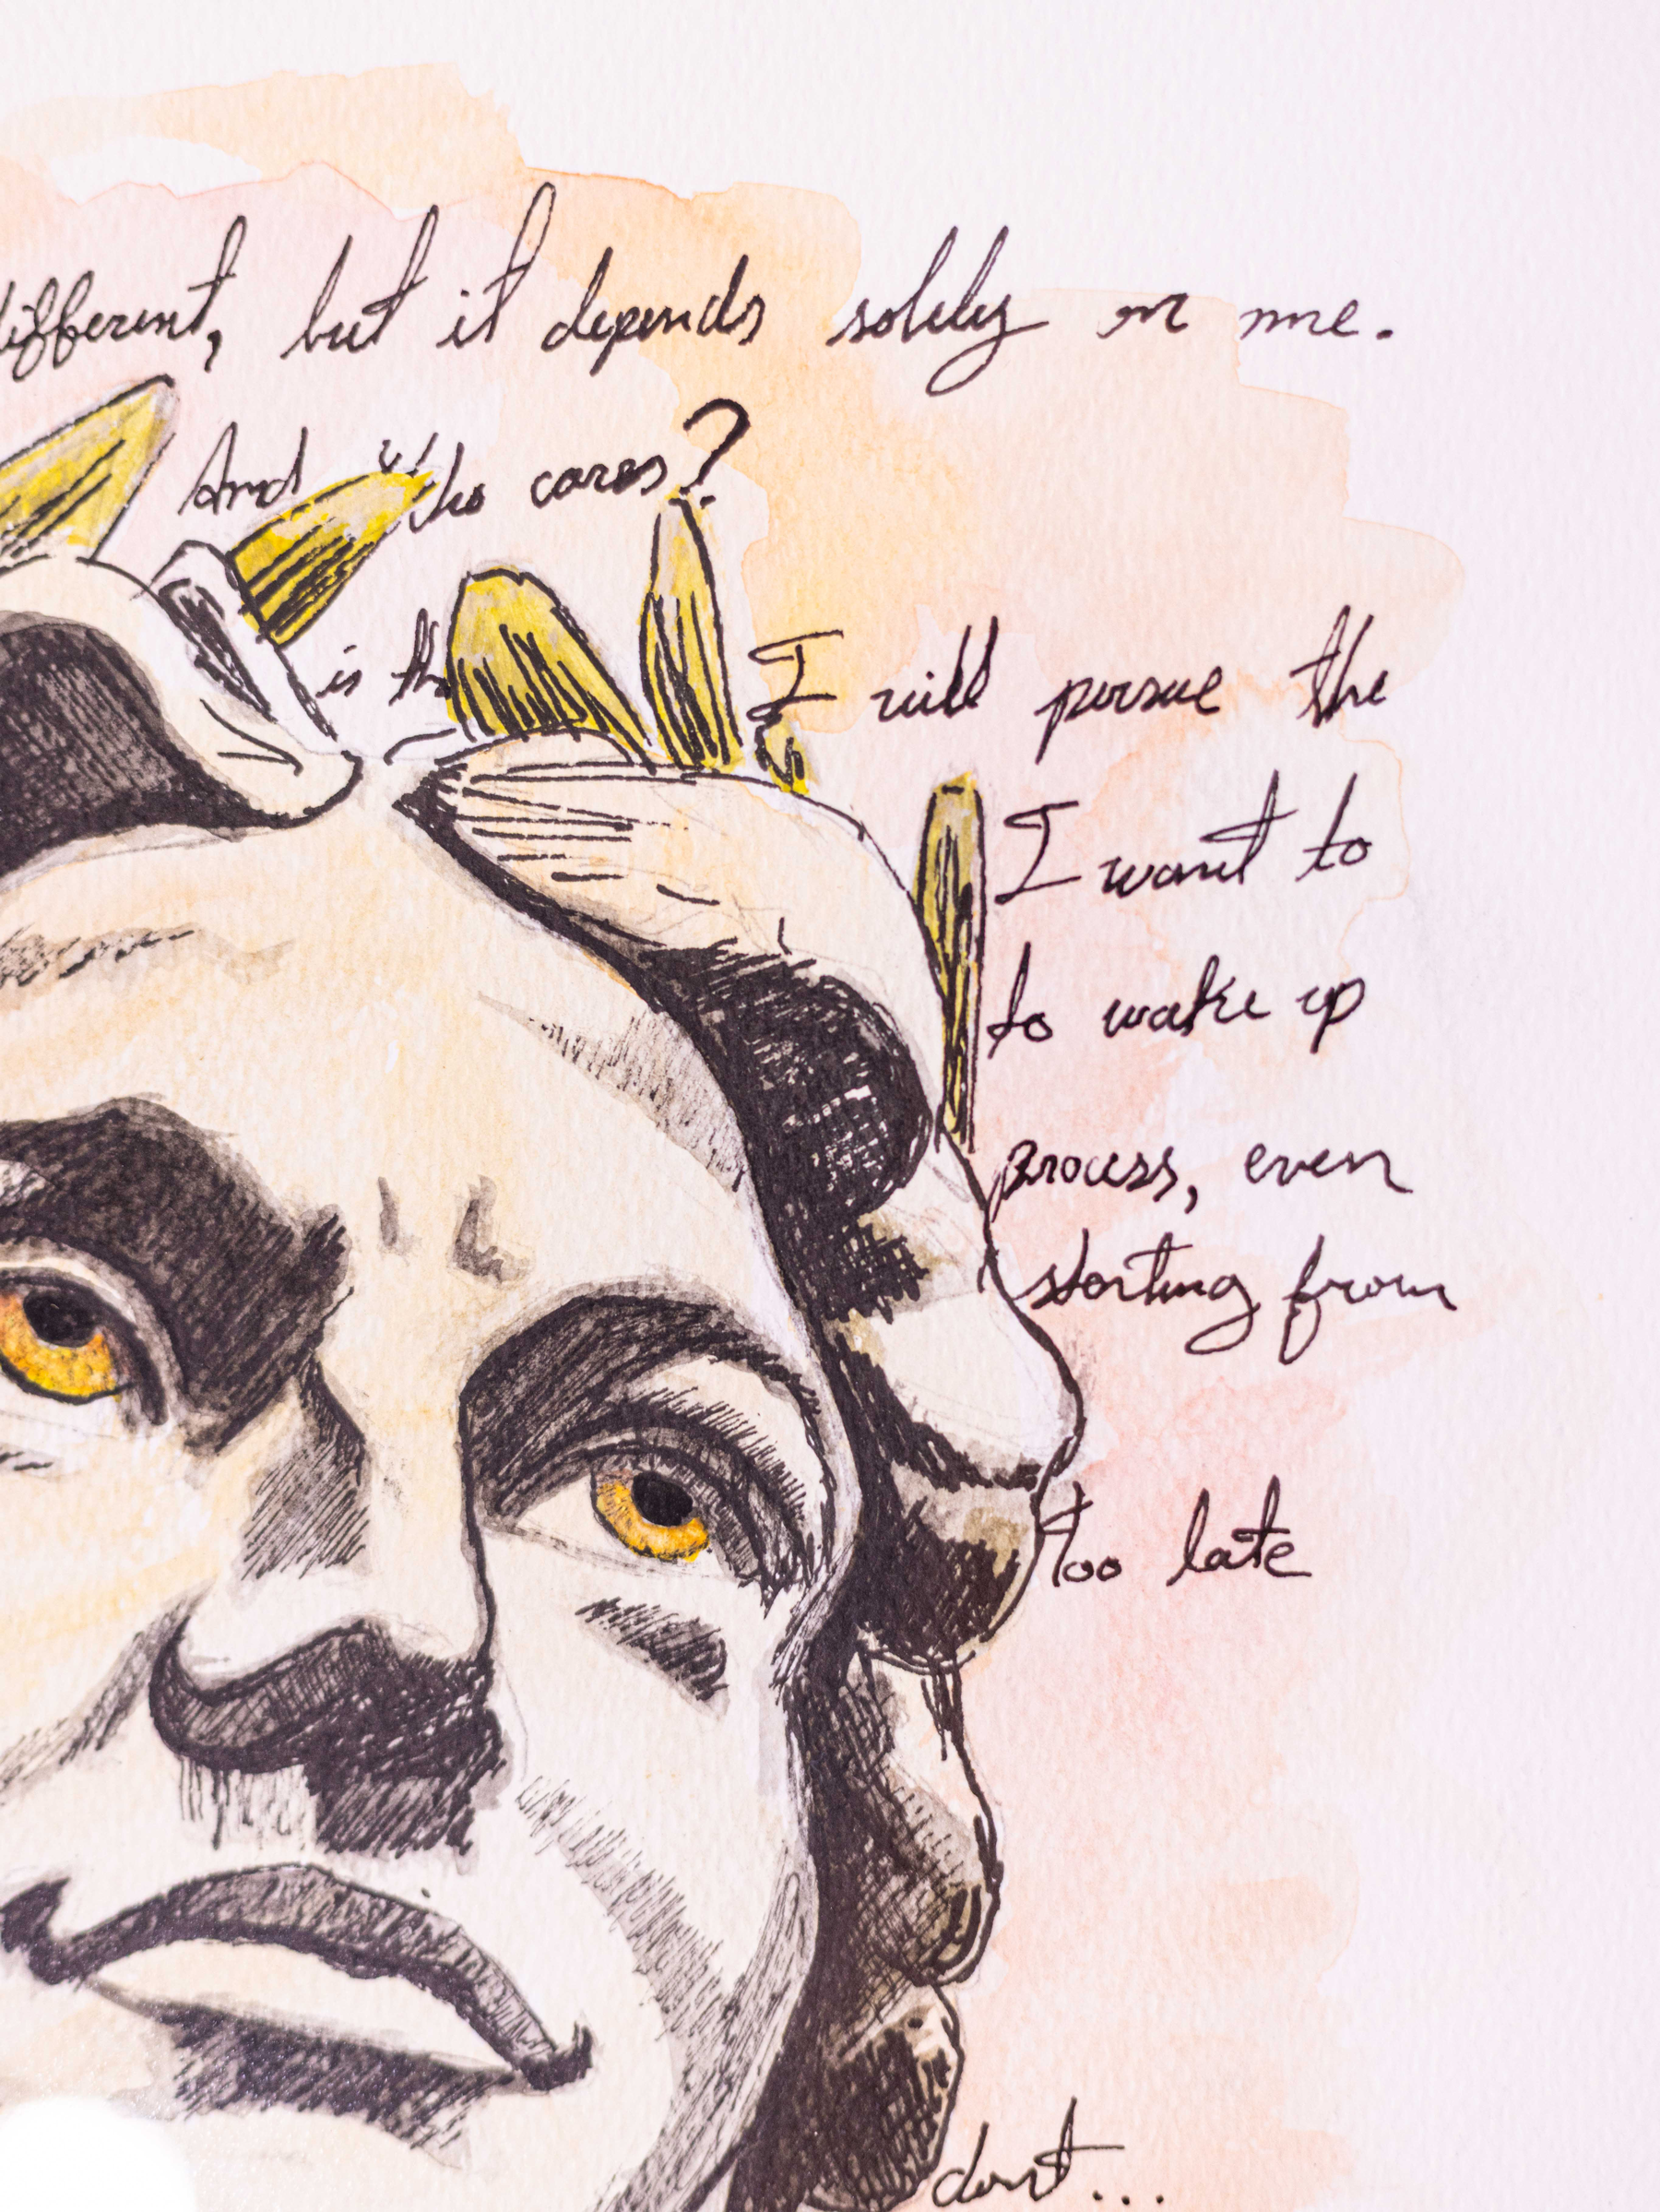 different, but it depends solely on me.
And who cares?
is th I will pursue the
I want to
to wake up
process, even
starting from
too late
don't...